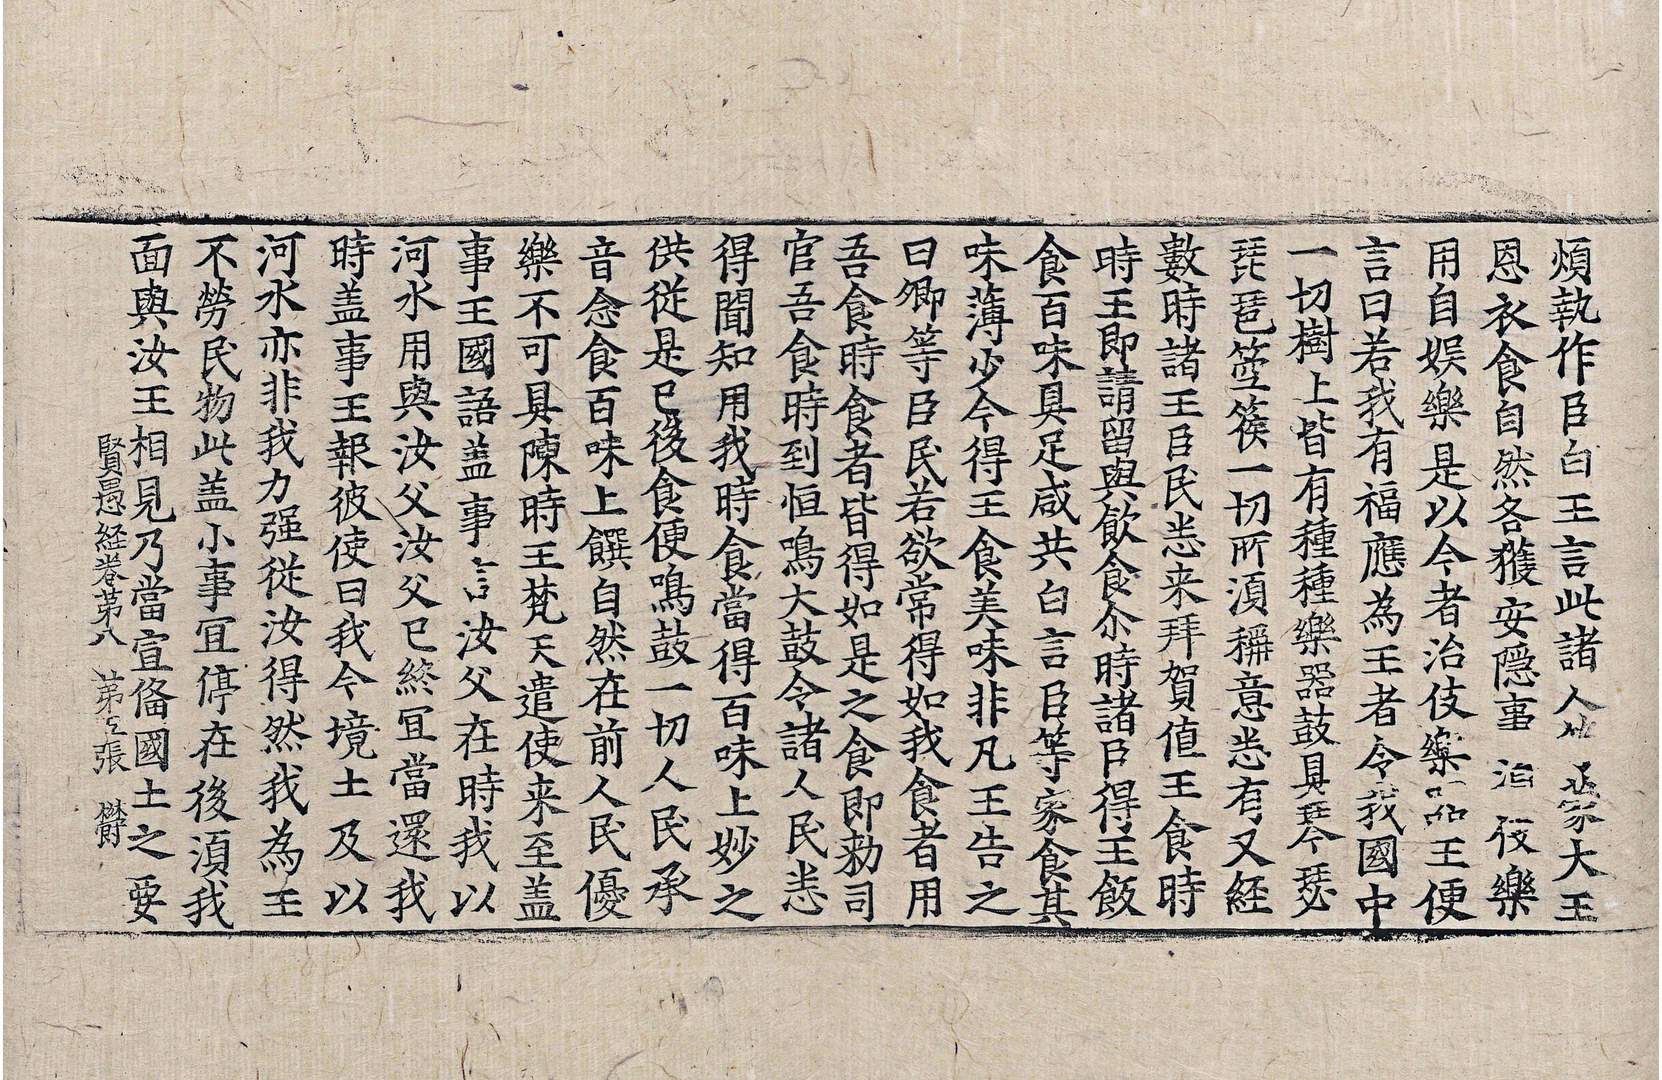 煩執作臣白王言此諸人 蒙大王
恩衣食自然各獲安隱事 治伎樂
用自娯樂是以今者治伎樂器王便
言曰若我有福應為王者令我國中
一切樹上皆有種種樂器鼓具琴瑟
琵琶箜篌一切所湏稱意悉有又經
數時諸王臣民悉来拜賀值王食時
時王即請留與飲食尒時諸臣得王飯
食百味具足咸共白言臣等家食其
味薄少今得王食美味非凡王告之
曰卿等臣民若欲常得如我食者用
吾食時食者皆得如是之食即勑司
官吾食時到恒鳴大鼓令諸人民悉
得聞知用我時食當得百味上妙之
供從是已後食便鳴鼓一切人民承
音念食百味上饌自然在前人民優
樂不可具陳時王梵天遣使来至盖
事王國語盖事言汝父在時我以
河水用與汝父汝父已終冝當還我
時盖事王報彼使曰我今境土及以
河水亦非我力强從汝得然我為王
不勞民物此盖小事冝停在後湏我
面與汝王相見乃當宣俻國土之要
賢愚経卷第八 第五張 欝